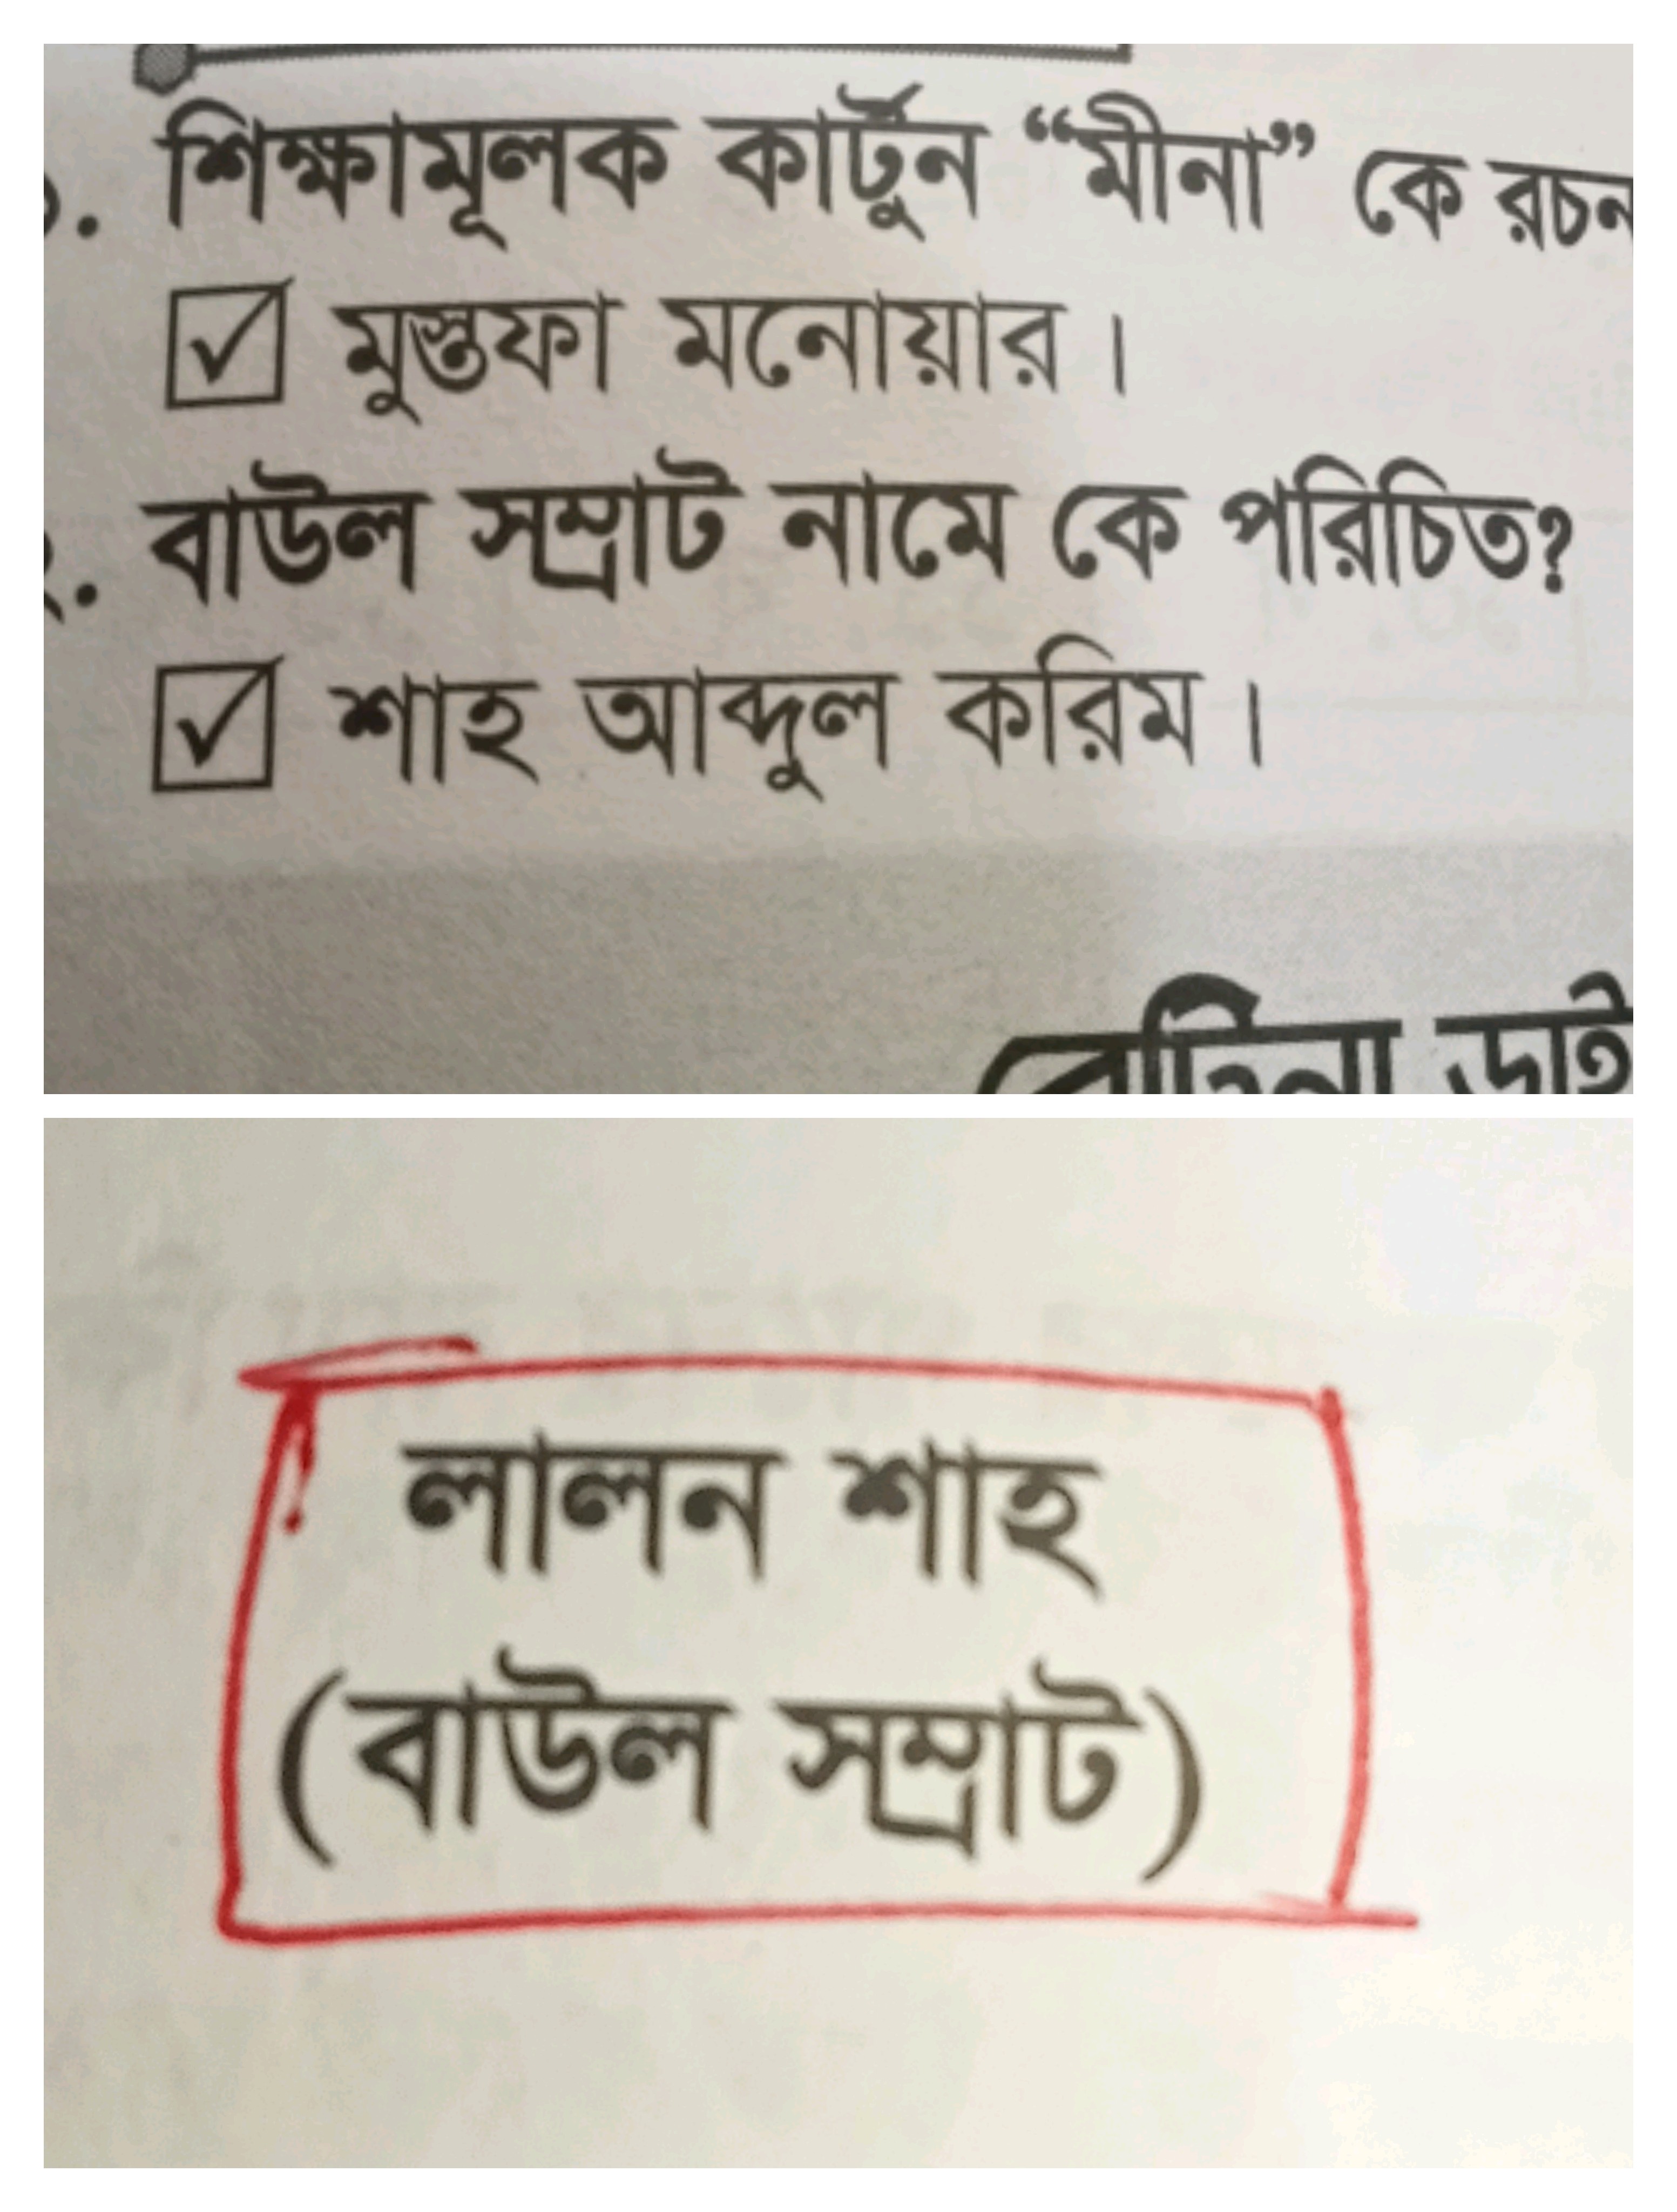 শিক্ষামূলক কার্টুন “মীনা” কে
মুস্তফা মনোয়ার।
বাউল সম্রাট নামে কে পরিচিত?
শাহ আব্দুল করিম।
লালন শাহ
(বাউল সম্রাট)